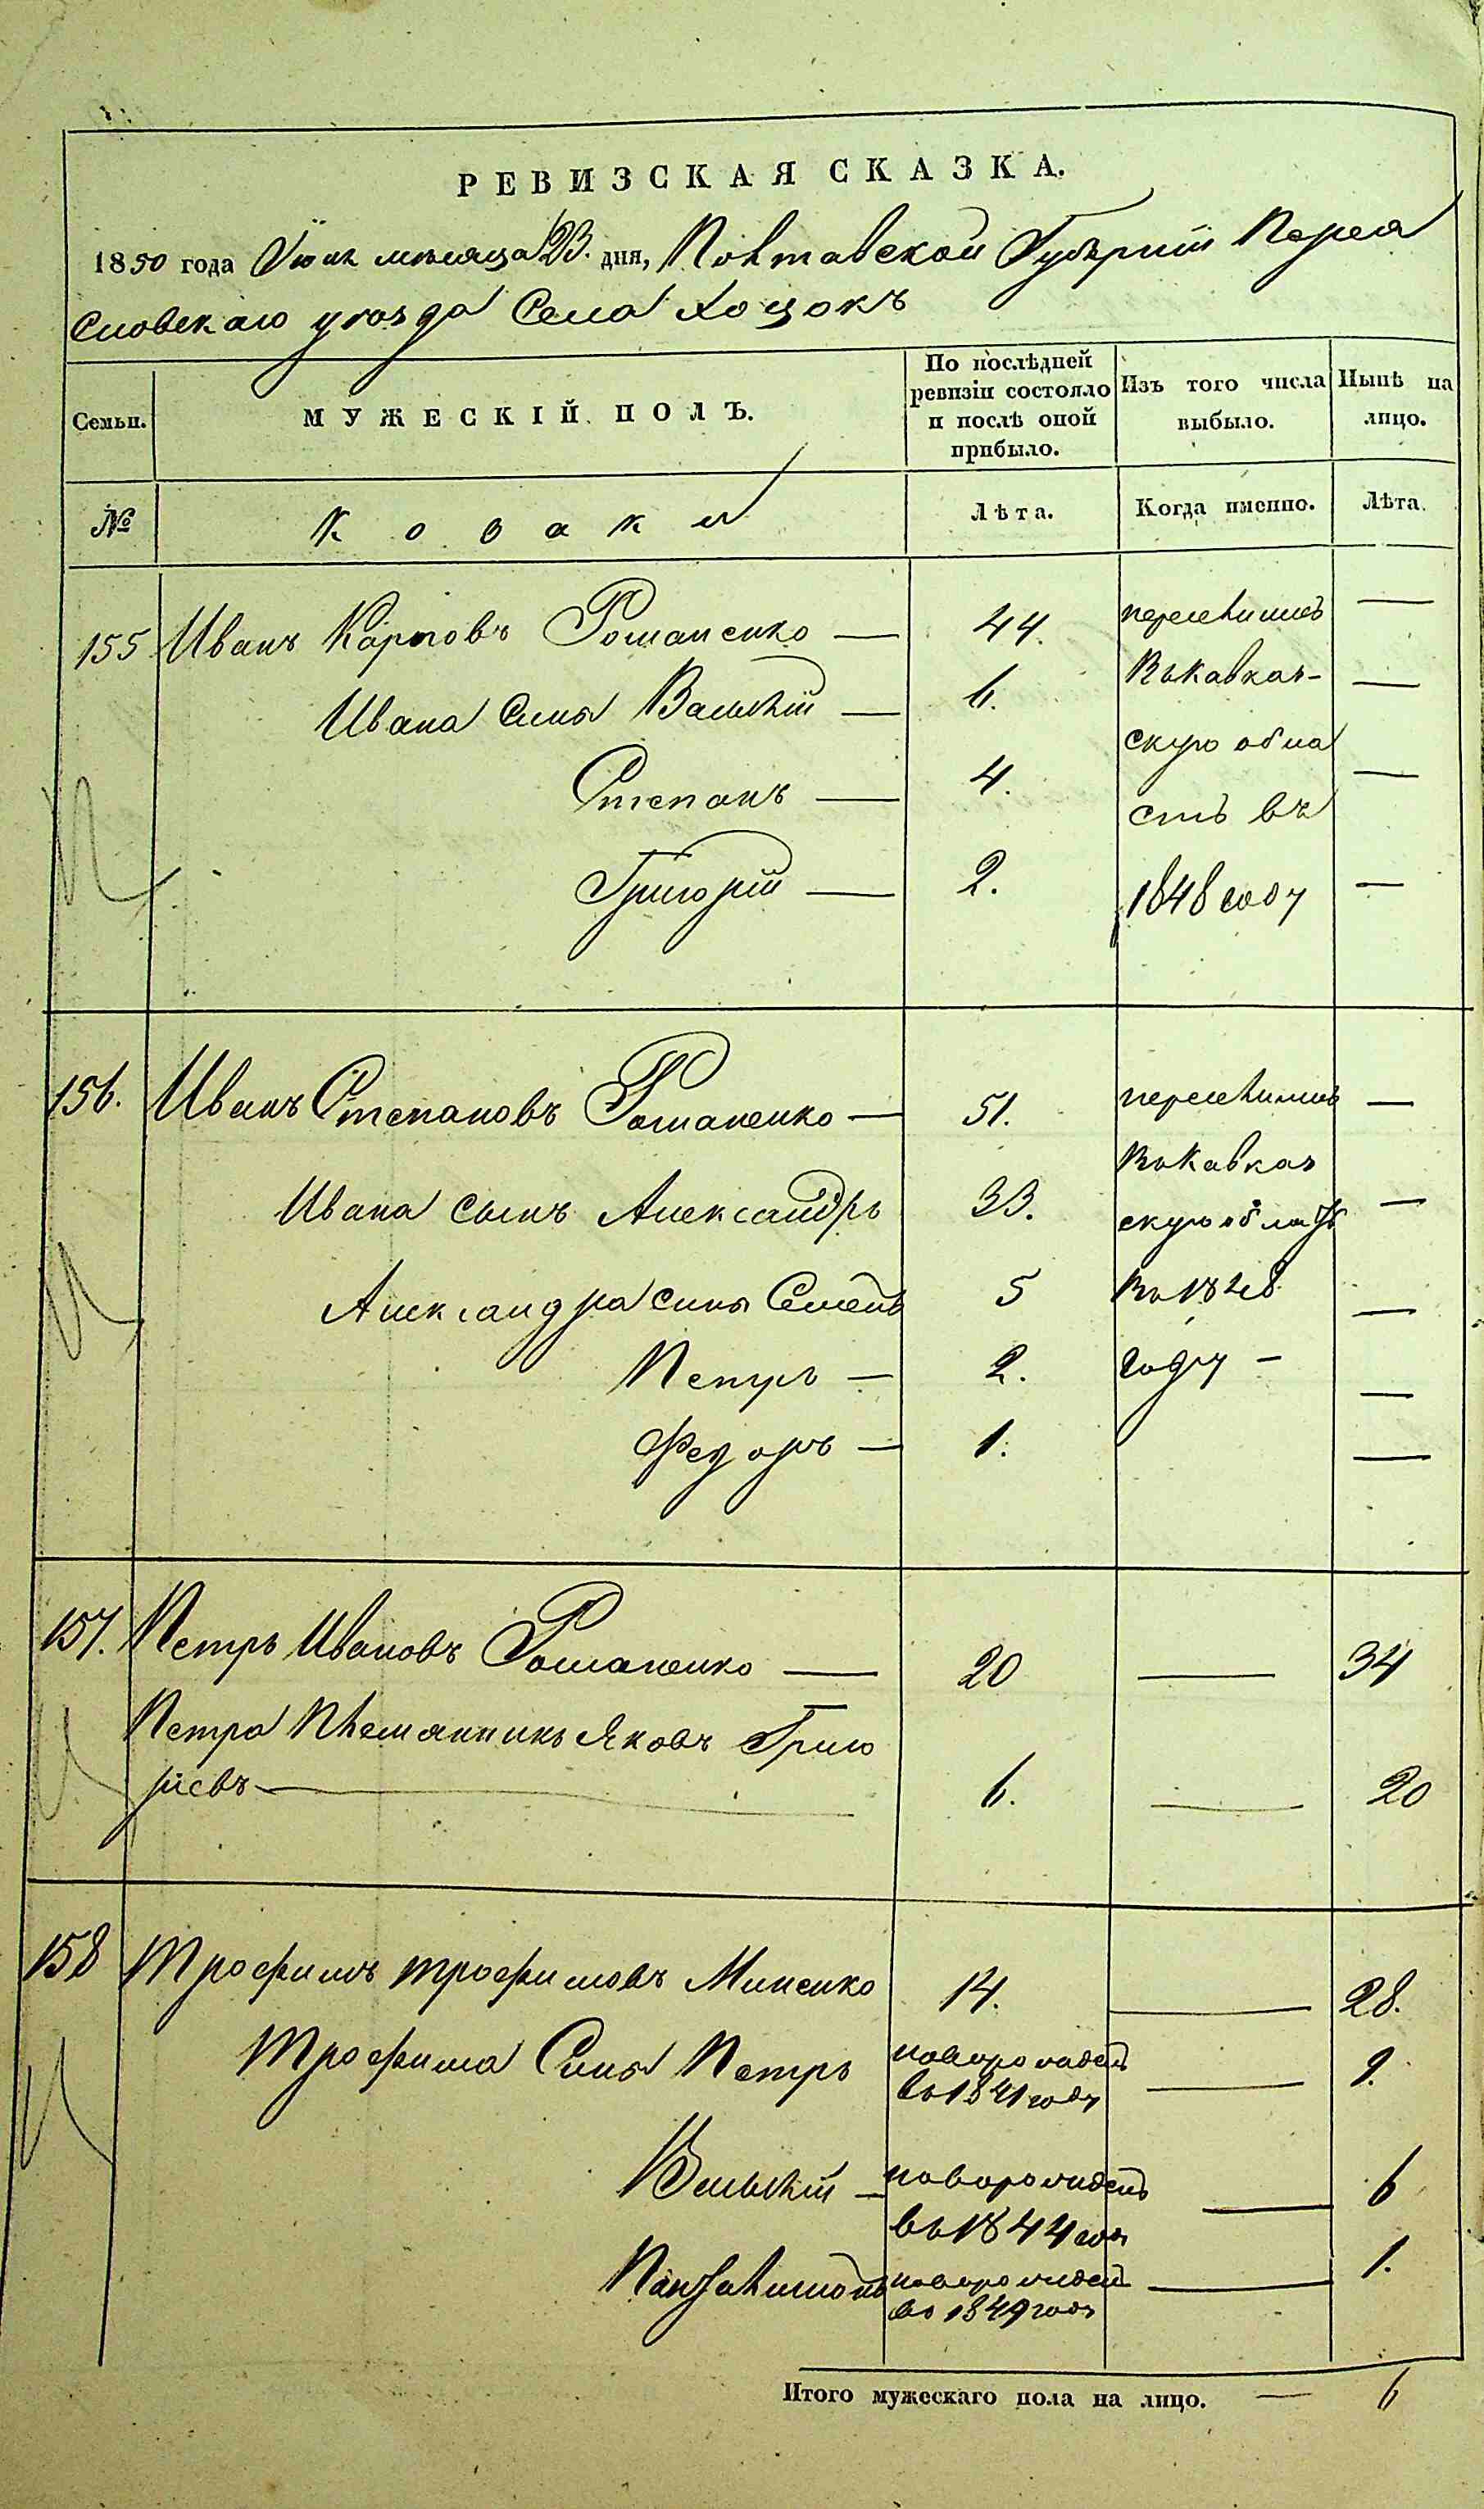 РЕВИЗСКАЯ СКАЗКА.
1850 года Іюня мѣсяца 23. дня, Полтавской Губерніи Перея
славскаго уѣзда Села Хоцокъ
Семьи.
МУЖЕСКІЙ ПОЛЪ.
По послѣдней ревизіи состояло и послѣ оной прибыло.
Изъ того числа выбыло.
Нынѣ на лицо.
№
Козаки
Лѣта.
Когда именно.
Лѣта.
155 Иванъ Карповъ Романенко — 44. переселились —
Ивана Сыны Василій — 6. въ Кавказ- —
Степанъ — 4. скую обла —
сть въ
Григорій — 2. 1848 году —
156. Иванъ Степановъ Романенко — 51. переселились —
въ Кавказ
Ивана сынъ Александръ 33. скую область —
Александра сыны Семенъ 5 въ 1848 —
Петръ — 2. году — —
Федоръ — 1. —
157. Петръ Ивановъ Романенко — 20 — 34
Петра Племянникъ Яковъ Григо
рьевъ — 6. — 20
158 Трофимъ Трофимовъ Миненко 14. — 28.
Трофима Сыны Петръ новорожденъ — 9.
въ 1841 году
Василій — новорожденъ — 6
въ 1844 году
Пантелимонъ новорожденъ — 1.
въ 1849 году
Итого мужескаго пола на лицо. — 6